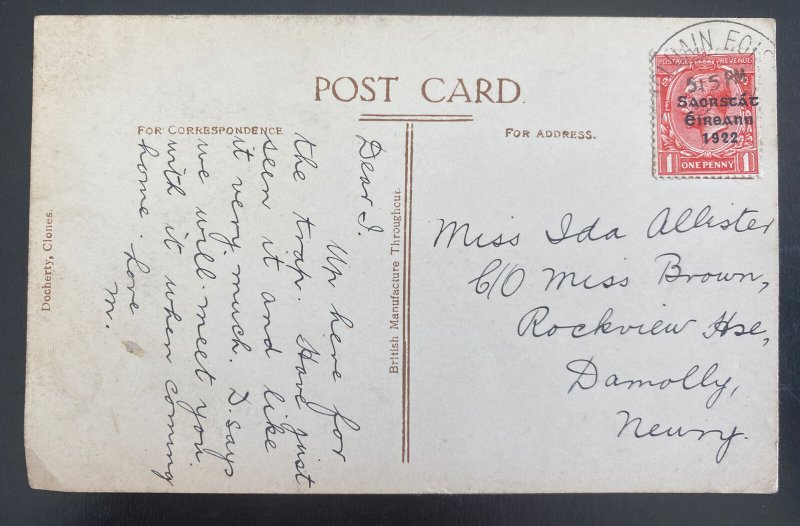 POST CARD.
FOR CORRESPONDENCE
FOR ADDRESS.
Dear I.
Up here for
the trap. Have just
seen it and like
it very much. D. says
we will meet you
with it when coming
home. Love
M.
Docherty, Clones.
British Manufacture Throughout.
5:15 PM
POSTAGE REVENUE
Saorstát
Éireann
1922
1 ONE PENNY 1
Miss Ida Allister
C/O Miss Brown,
Rockview Hse,
Damolly,
Newry.